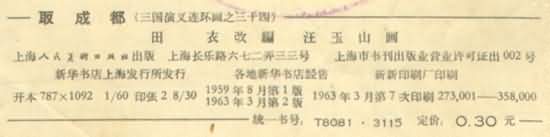 取成都 （三国演义连环画之三十四）
田衣改编 汪玉山画
上海人民美术出版社出版 上海长乐路六七二弄三三号 上海市书刊出版业营业许可证出002号
新华书店上海发行所发行 各地新华书店经售 新新印刷厂印刷
开本787×1092 1/60 印张2 8/30 1959年8月第1版 1963年3月第2版 1963年3月第7次印刷 273,001—358,000
统一书号：T8081·3115 定价：0.30元